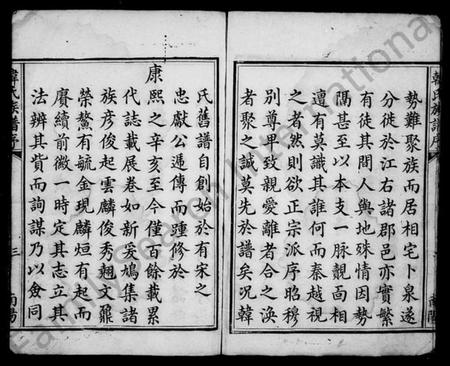 韓氏族譜序
勢難聚族而居相宅卜泉遂
分徙於江右諸郡邑亦實繁
有徒其間人與地殊情因勢
隔甚至以本支一脉覿面相
遭有莫識其誰何而秦越視
之者然則欲正宗派序昭穆
別尊卑致親愛離者合之渙
者聚之誠莫先於譜矣況韓
氏舊譜自創始於有宋之
忠獻公遞傳而踵修於
康
熙之辛亥至今僅百餘載累
代誌載展卷如新爰鳩集諸
族彥俊起雲麟俊秀翹文鼐
榮鰲有毓金現麟烜有起而
賡續前徽一時定其志立其
法辨其貲而詢謀乃以僉同
韓氏族譜序
三
南陽
FamilySearch International